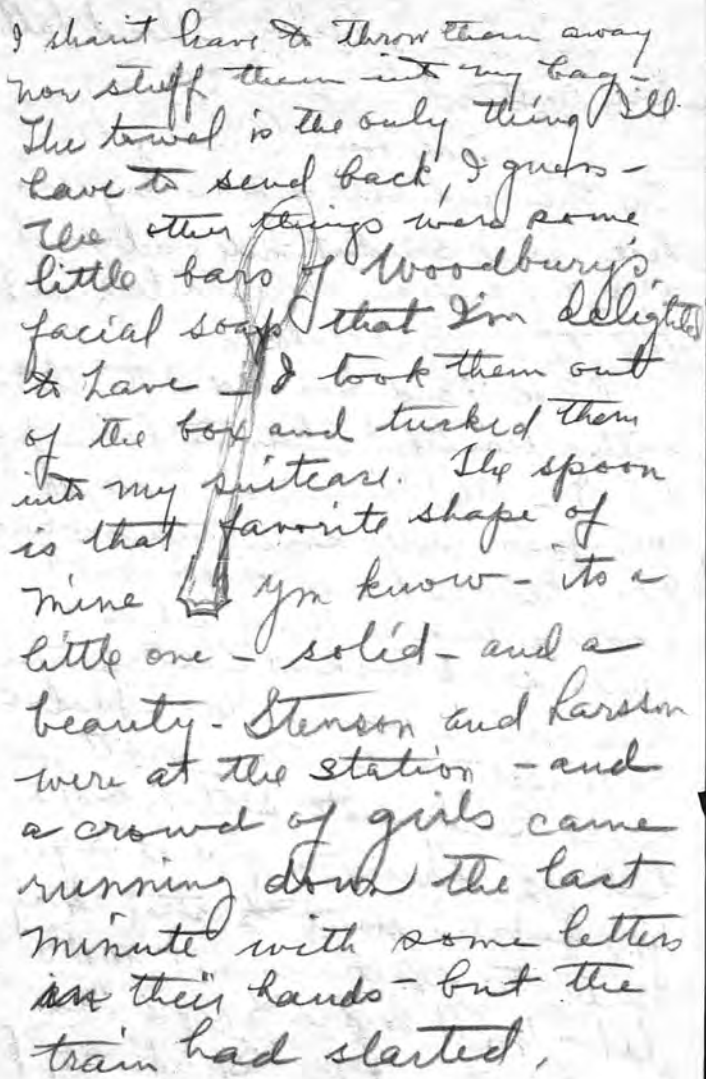 I shan't have to throw them away
nor stuff them into my bag -
The towel is the only thing I'll
have to send back, I guess -
The other things were some
little bars of Woodbury's
facial soap that I'm delighted
to have - I took them out
of the box and tucked them
into my suitcase. The spoon
is that favorite shape of
mine you know - its a
little one - solid - and a
beauty - Stenson and Larsson
were at the station - and
a crowd of girls came
running down the last
minute with some letters
in their hands - but the
train had started.